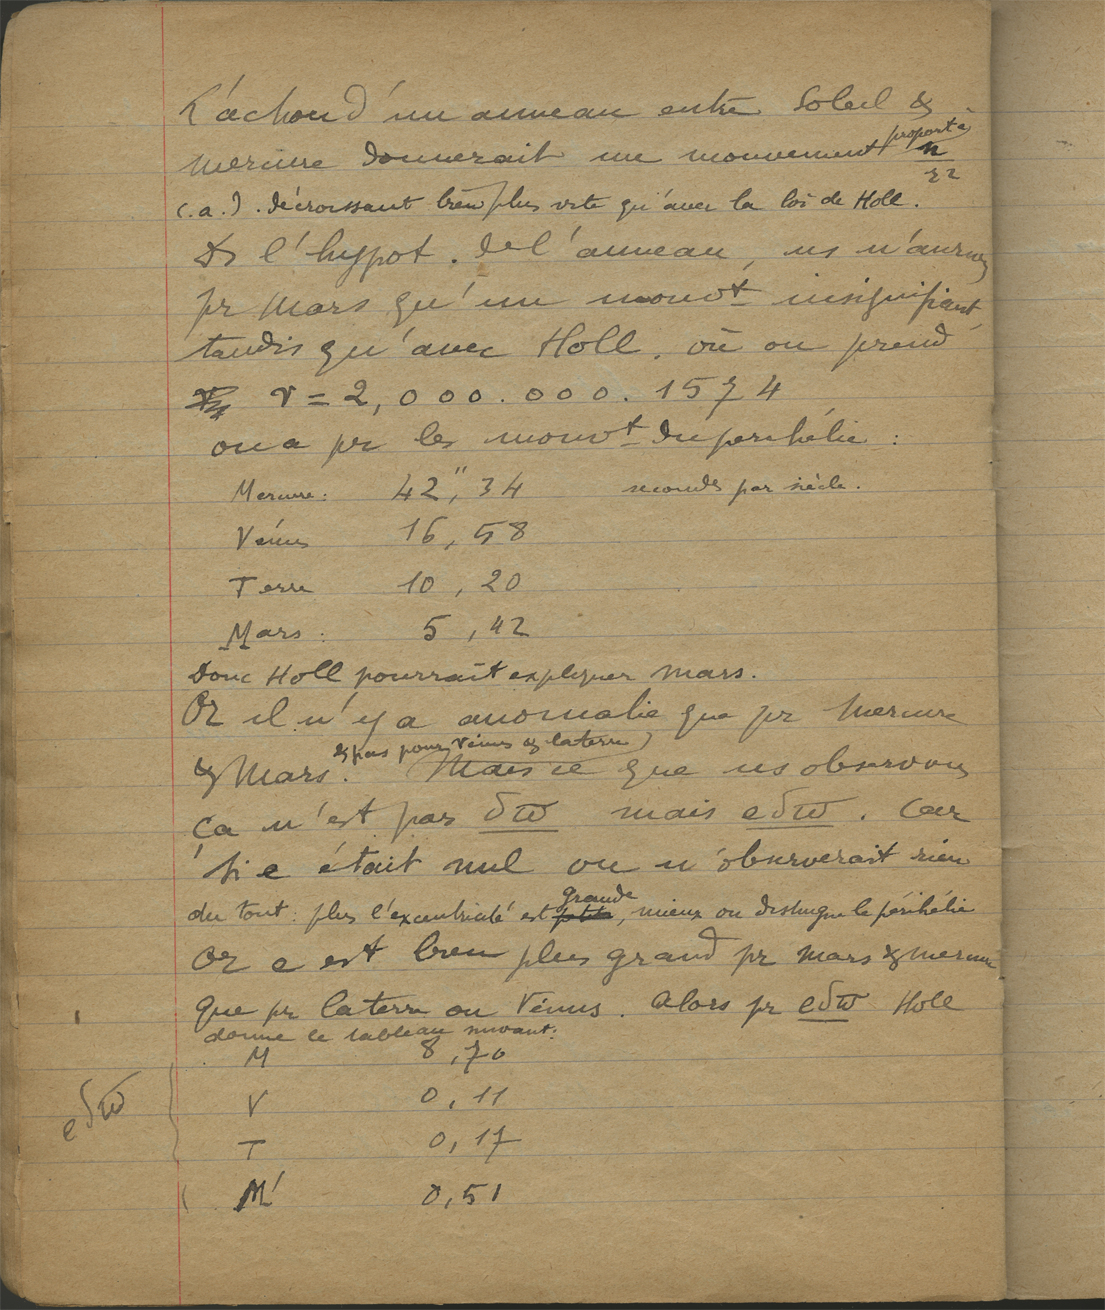 L'action d'un anneau entre Soleil &
Mercure donnerait un mouvement proport. à n/r2
(.a.). décroissant bien plus vite qu'avec la loi de Hall.
Ds l'hypot. de l'anneau, ns n'aurions
pr Mars qu'un mouvt insignifiant,
tandis qu'avec Hall. où on prend
r = 2,000.000.1574
on a pr les mouvt du périhélie :
Mercure: 42",34 secondes par siècle.
Vénus 16,58
Terre 10,20
Mars : 5,42
Donc Hall pourrait expliquer Mars.
Or il n'y a anomalie que pr Mercure
& Mars. & pas pour Vénus & la terre) Mais ce que ns observons
ça n'est pas δϖ mais eδϖ. Car
si e était nul on n'observerait rien
du tout: plus l'excentricité est petite grande, mieux on distingue le périhélie
Or e est bien plus grand pr Mars & Mercure
que pr la terre ou Vénus. Alors pr eδϖ Hall
donne le tableau suivant:
M 8,70
V 0,11
eδϖ
T 0,17
M' 0,51